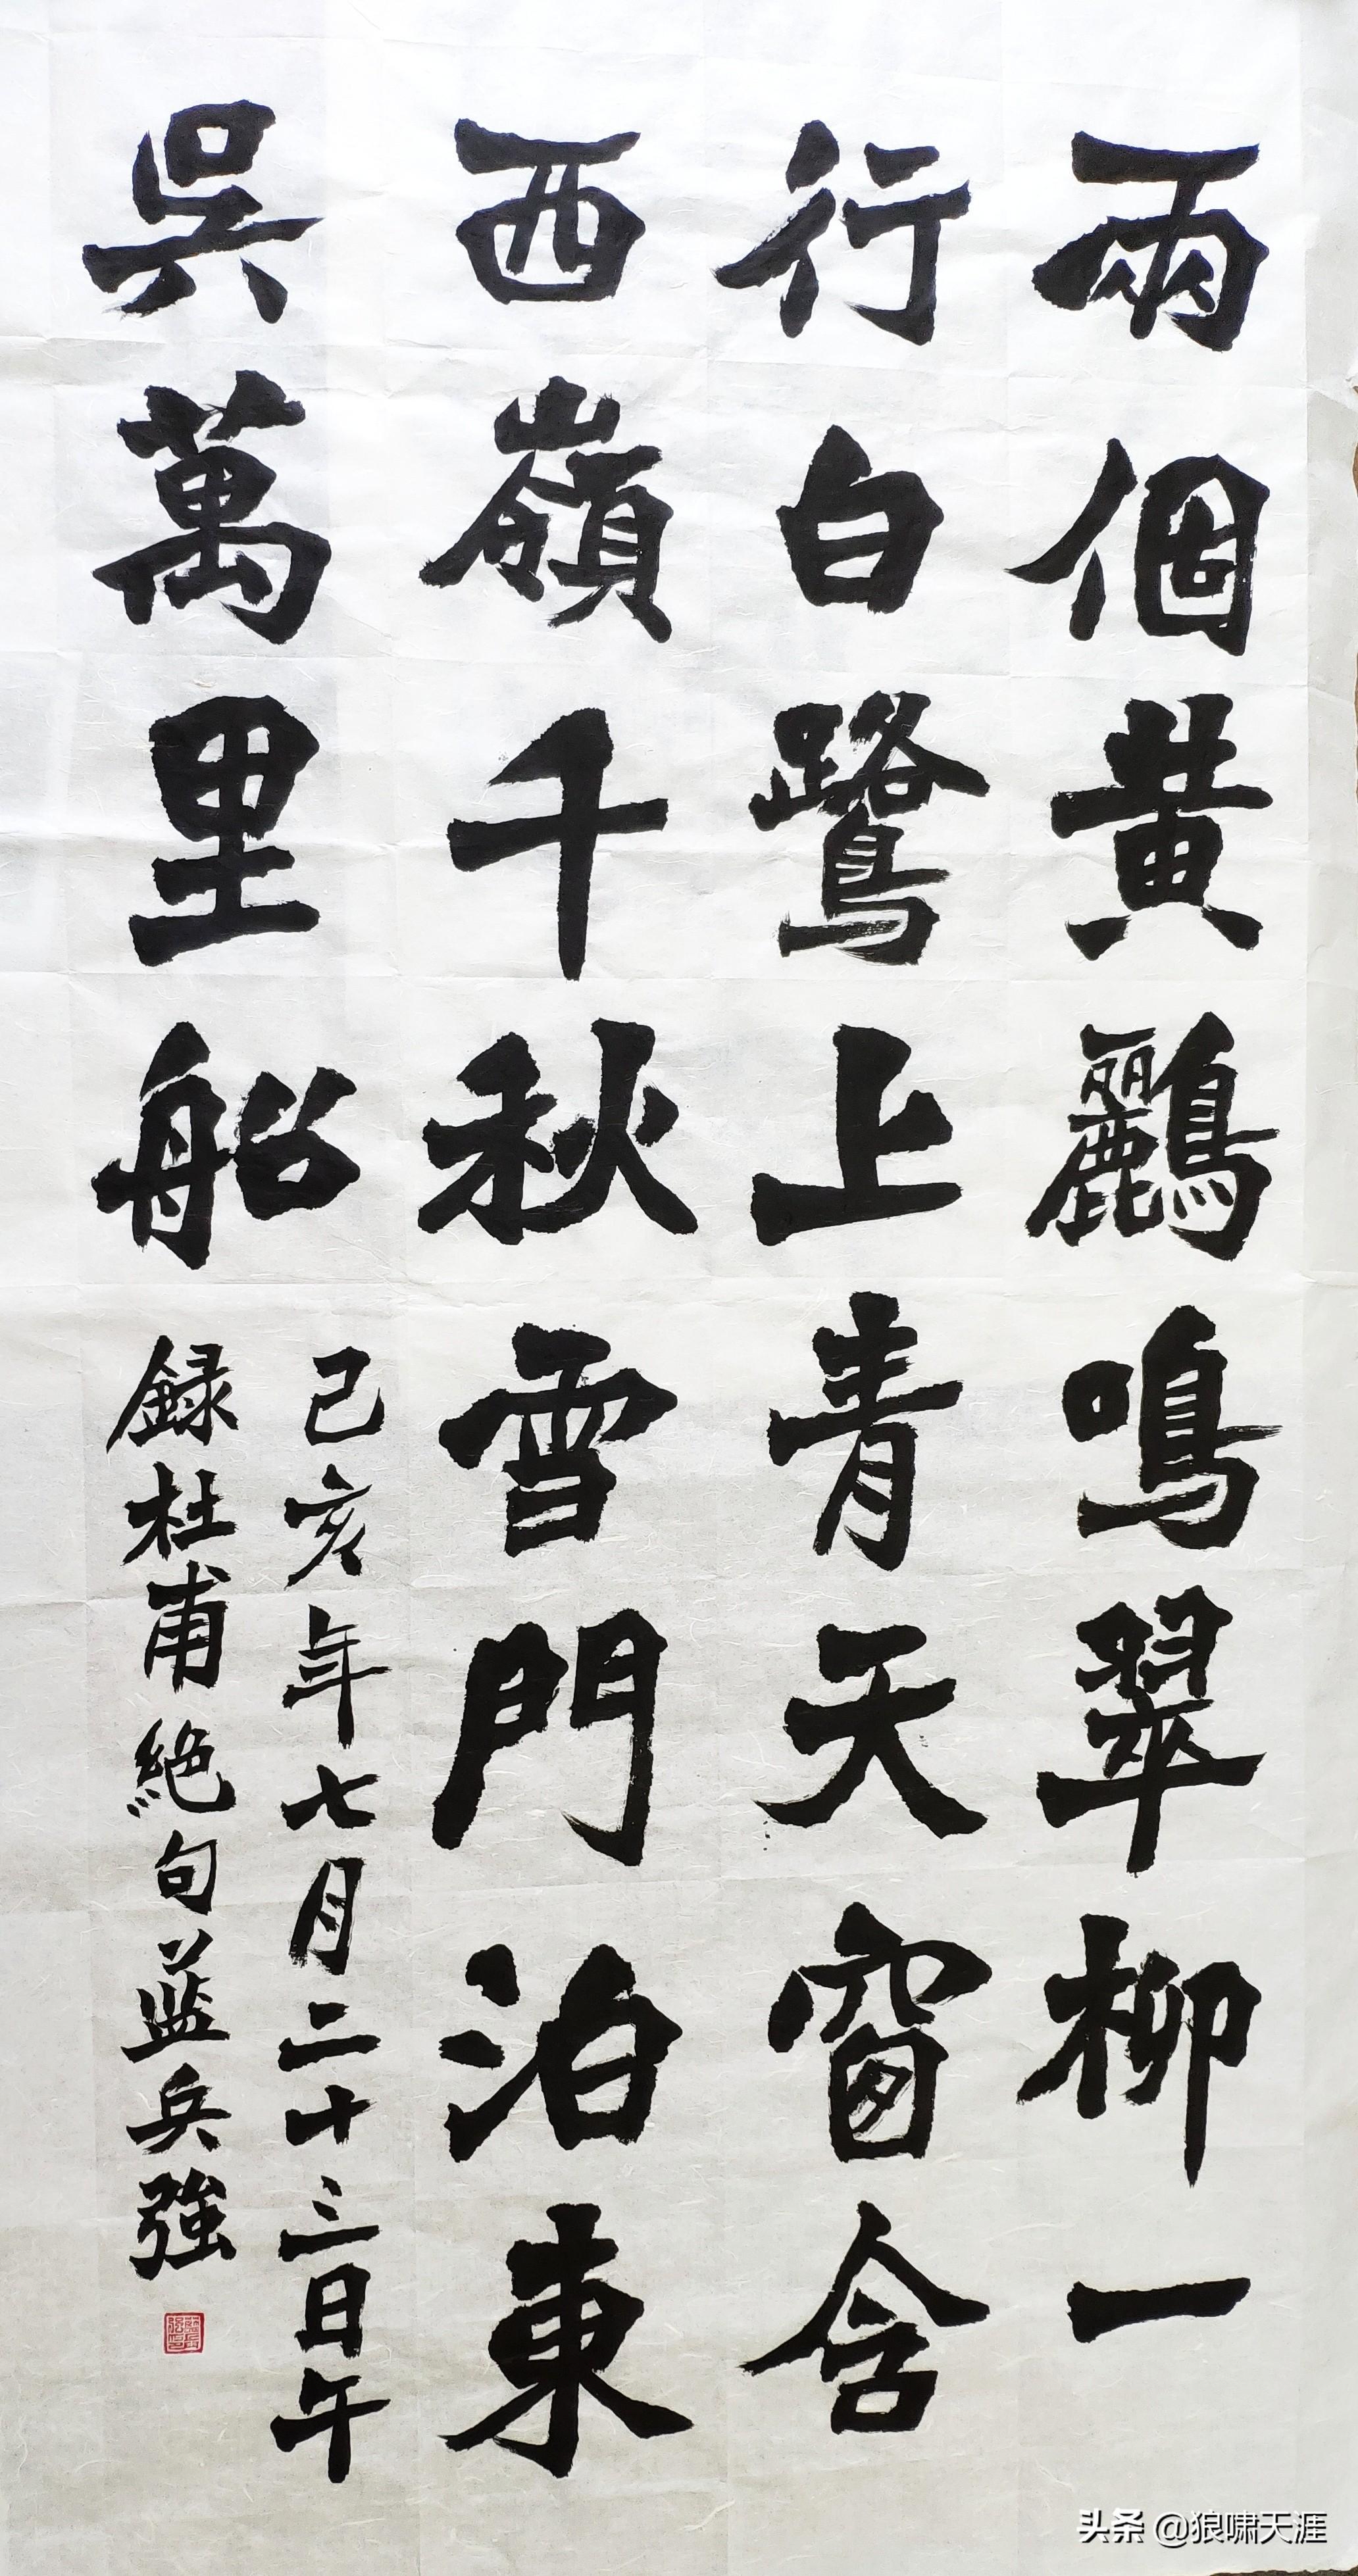 兩個黄鸝鳴翠柳一
行白鷺上青天窗含
西嶺千秋雪門泊東
吳萬里船
己亥年七月二十三日午
録杜甫絶句藍兵強
头条 @狼啸天涯